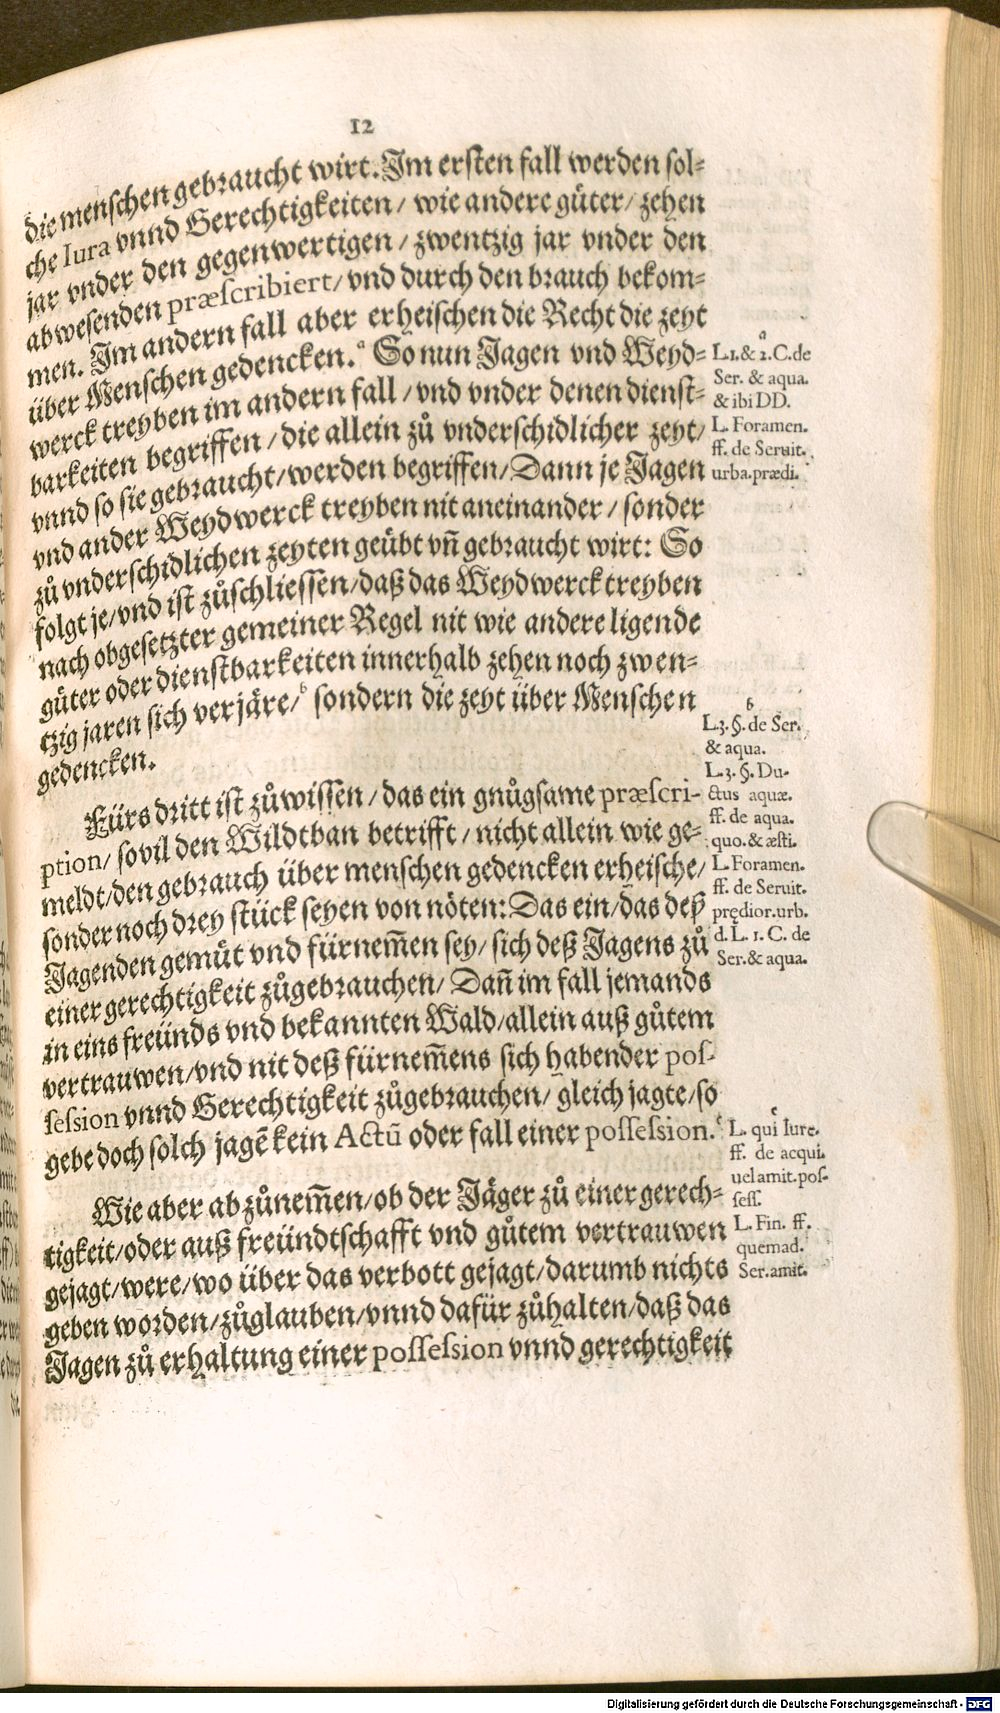 12
die menschen gebraucht wirt. Im ersten fall werden sol⸗
che Iura vnnd Gerechtigkeiten / wie andere güter / zehen
jar vnder den gegenwertigen / zwentzig jar vnder den
abwesenden præscribiert / vnd durch den brauch bekom⸗
men. Im andern fall aber erheischen die Recht die zeyt
über Menschen gedencken.ᵃ So nun Jagen vnd Weyd⸗
werck treyben im andern fall / vnd vnder denen dienst⸗
barkeiten begriffen / die allein zů vnderschidlicher zeyt /
vnnd so sie gebraucht / werden begriffen / Dann je Jagen
vnd ander Weydwerck treyben nit aneinander / sonder
zů vnderschidlichen zeyten geübt vñ gebraucht wirt: So
folgt je / vnd ist zůschliessen / daß das Weydwerck treyben
nach obgesetzter gemeiner Regel nit wie andere ligende
güter oder dienstbarkeiten innerhalb zehen noch zwen⸗
tzig jaren sich verjäre /ᵇ sondern die zeyt über Menschen
gedencken.
Fürs dritt ist zůwissen / das ein gnůgsame præscri-
ption / sovil den Wildtban betrifft / nicht allein wie ge⸗
meldt / den gebrauch über menschen gedencken erheische /
sonder noch drey stück seyen von nöten: Das ein / das deß
Jagenden gemüt vnd fürnem̄en sey / sich deß Jagens zů
einer gerechtigkeit zůgebrauchen / Dañ im fall jemands
in eins freünds vnd bekannten Wald / allein auß gůtem
vertrauwen / vnd nit deß fürnem̄ens sich habender pos-
session vnnd Gerechtigkeit zůgebrauchen / gleich jagte / so
gebe doch solch jagẽ kein Actũ oder fall einer possession.ᶜ
Wie aber abzůnem̄en / ob der Jäger zů einer gerech⸗
tigkeit / oder auß freündtschafft vnd gůtem vertrauwen
gejagt / were / wo über das verbott gejagt / darumb nichts
geben worden / zůglauben / vnnd dafür zůhalten / daß das
Jagen zů erhaltung einer possession vnnd gerechtigkeit
a
L.1.& 2.C.de
Ser. & aqua.
& ibi DD.
L. Foramen.
ff. de Seruit.
urba.prædi.
b
L.3.§.de Ser.
& aqua.
L.3.§. Du-
ctus aquæ.
ff. de aqua.
quo.& æsti.
L.Foramen.
ff. de Seruit.
prędior.urb.
d.L.1.C. de
Ser.& aqua.
c
L. qui Iure.
ff. de acqui.
uel amit.pos-
sess.
L. Fin. ff.
quemad.
Ser.amit.
Digitalisierung gefördert durch die Deutsche Forschungsgemeinschaft - DFG